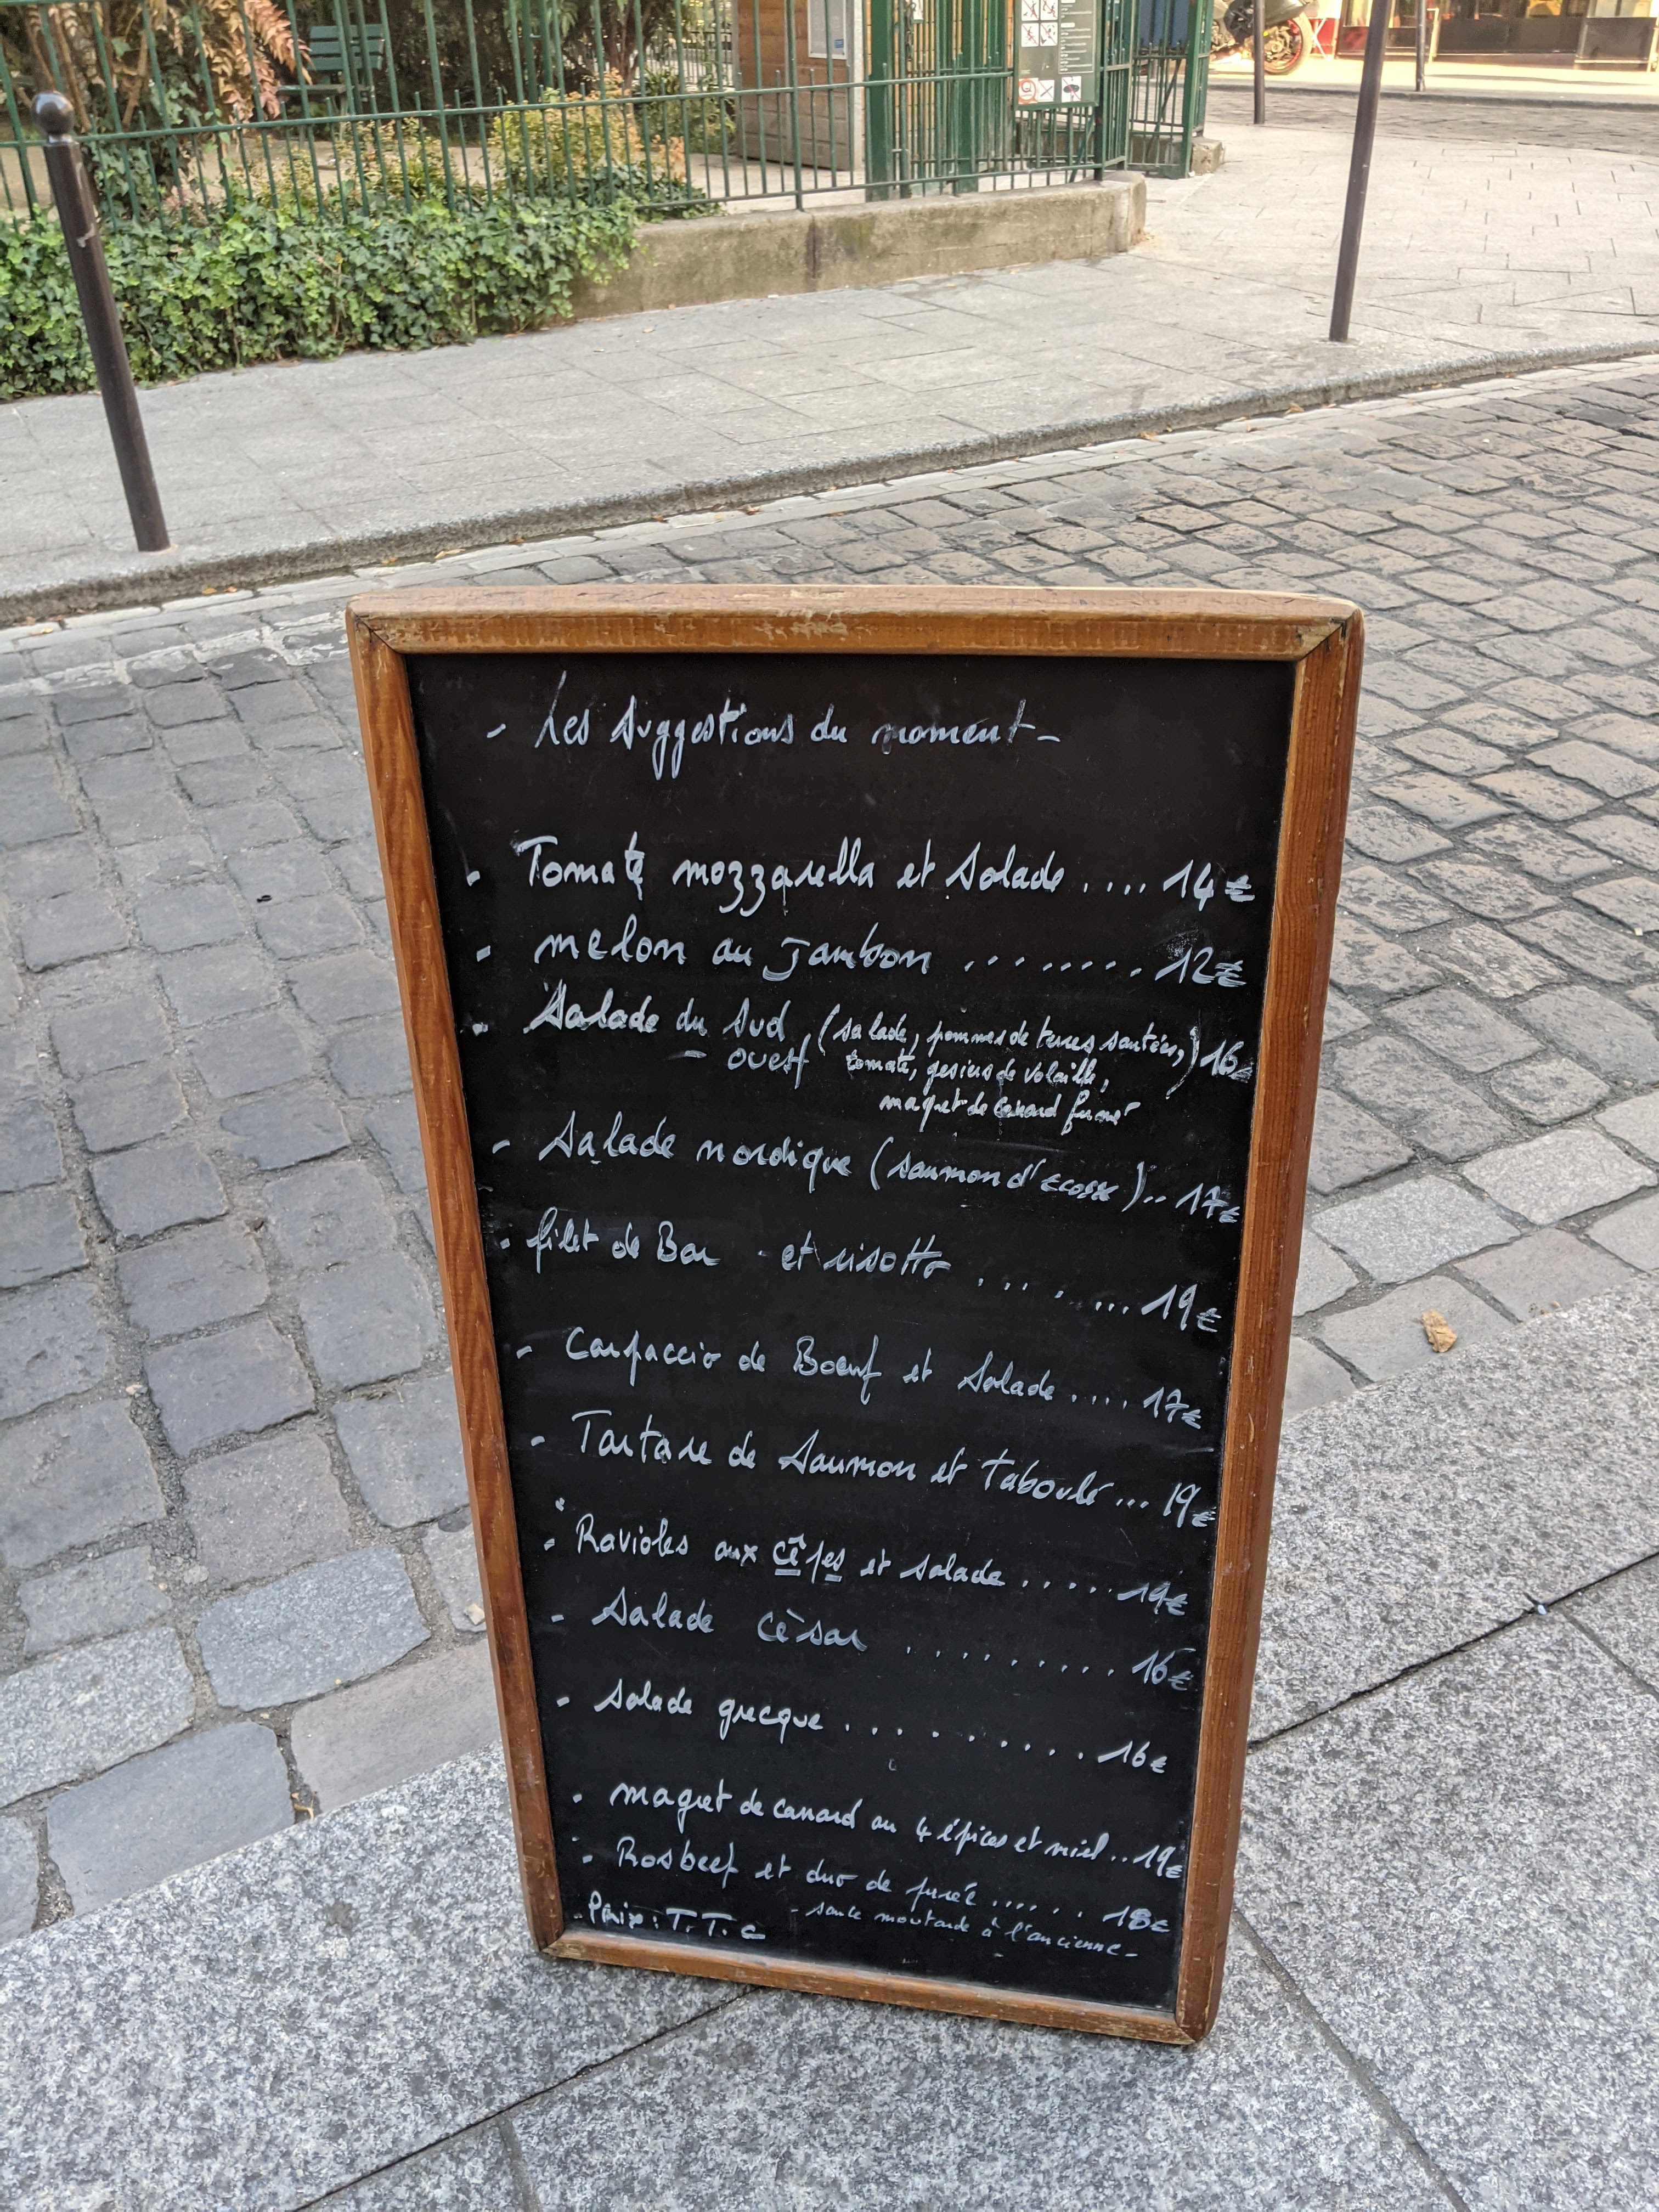 - Les suggestions du moment -
- Tomate mozzarella et Salade .... 14€
- melon au Jambon ........ 12€
- Salade du Sud (salade, pommes de terres sautées,) 16€
- ouest tomate, gesiers de volaille,
magret de canard fumé
- Salade nordique (saumon d'Ecosse).. 17€
- filet de Bar et risotto ........ 19€
- Carpaccio de Boeuf et Salade .... 17€
- Tartare de Saumon et taboulé ... 19€
- Ravioles aux cêpes et salade ..... 19€
- Salade Cèsar ......... 16€
- Salade grecque ......... 16€
- magret de canard au 4 épices et miel .. 19€
- Rosbeef et duo de purée ...... 18€
- sauce moutarde à l'ancienne -
- Prix : T.T.C